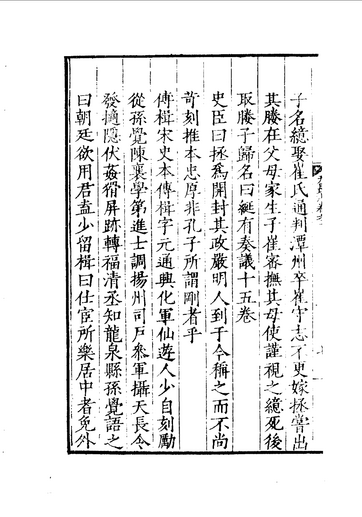 子名繶娶崔氏通判潭州卒崔守志不更嫁拯嘗出
其媵在父母家生子崔審撫其母使謹視之繶死後
取媵子歸名曰綖有奏議十五卷
史臣曰拯爲開封其政嚴明人到于今稱之而不尚
苛刻推本忠厚非孔子所謂剛者乎
傅楫宋史本傳楫字元通興化軍仙遊人少自刻勵
從孫覺陳襄學第進士調揚州司戶叅軍攝天長令
發擿隱伏姦猾屏跡轉福清丞知龍泉縣孫覺語之
曰朝廷欲用君盍少留楫曰仕宦所樂居中者免外